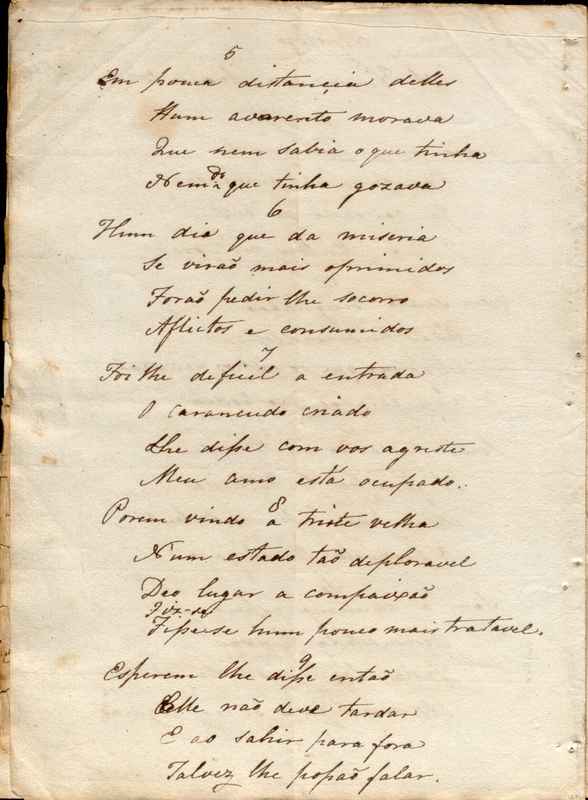 5
Em pouca distancia delles
Hum avarento morava
Que nem sabia o que tinha
Nem do que tinha gozava
6
Hum dia que da miseria
Se virão mais oprimidos
Forão pedir lhe socorro
Aflictos e consumidos
7
Foi lhe deficil a entrada
O carancudo criado
Lhe disse com vos agreste
Meu amo está ocupado.
8
Porem vindo a triste velha
N'um estado tão deploravel
Deo lugar a compaixão
Fez-se
Fisse-se hum pouco mais tratavel.
9
Esperem lhe disse então
Elle não deve tardar
E ao sahir para fora
Talvez lhe possão falar.